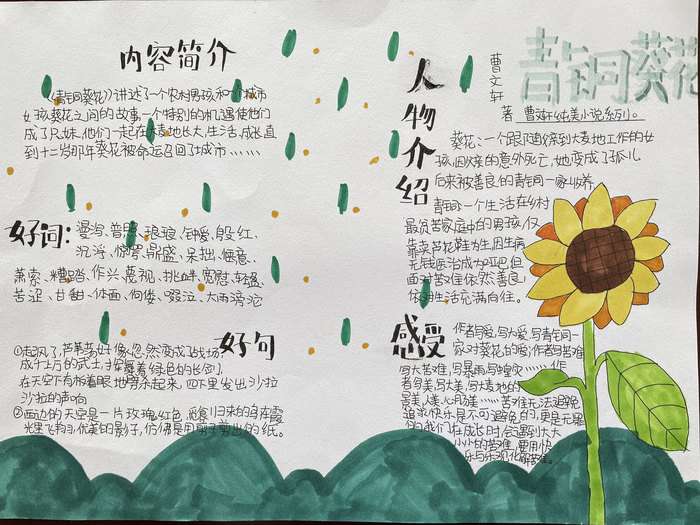 青铜葵花
曹文轩
著 曹文轩纯美小说系列。
内容简介
《青铜葵花》讲述了一个农村男孩和一个城市
女孩葵花之间的故事一个特别的机遇使他们
成了兄妹,他们一起在大麦地长大,生活,成长直
到十二岁那年葵花被命运召回了城市……
好词:
漫泻、普照、琅琅、钟爱、殷红、
沉浮、惊愕、鼎盛、呆拙、惬意、
萧索、糟蹋、作兴、蔑视、挑衅、宽慰、轻盈、
苦涩、甘甜、体面、佝偻、啜泣、大雨滂沱
好句
①起风了,芦苇荡好像忽然变成了战场,
成千上万的武士,挥舞着绿色的长剑,
在天空下有板有眼地劈杀起来,四下里发出沙拉
沙拉的声响
②西边的天空是一片玫瑰红色,
光里飞翔,优美的影子,仿佛是用剪子剪出的纸。
人物介绍
葵花:一个跟随爸爸到大麦地工作的女
孩,因爸爸的意外死亡,她变成了孤儿
后来被善良的青铜一家收养。
青铜:一个生活在乡村
最贫苦家庭中的男孩,仅
靠卖芦花鞋为生,因生病
无钱医治成为哑巴,但
面对苦难依然善良
依旧生活充满向往。
感受
作者写爱,写大爱,写青铜一
家对葵花的爱;作者写苦难
写大苦难,写暴雨写蝗灾……作
者写美,写大美,写大麦地的
最美,人美,心最美……苦难无法避免
追求快乐是不可避免的,更是无罪
的,我们在成长时,会遇到大大
小小的苦难,要用快
乐与乐观化解苦难。